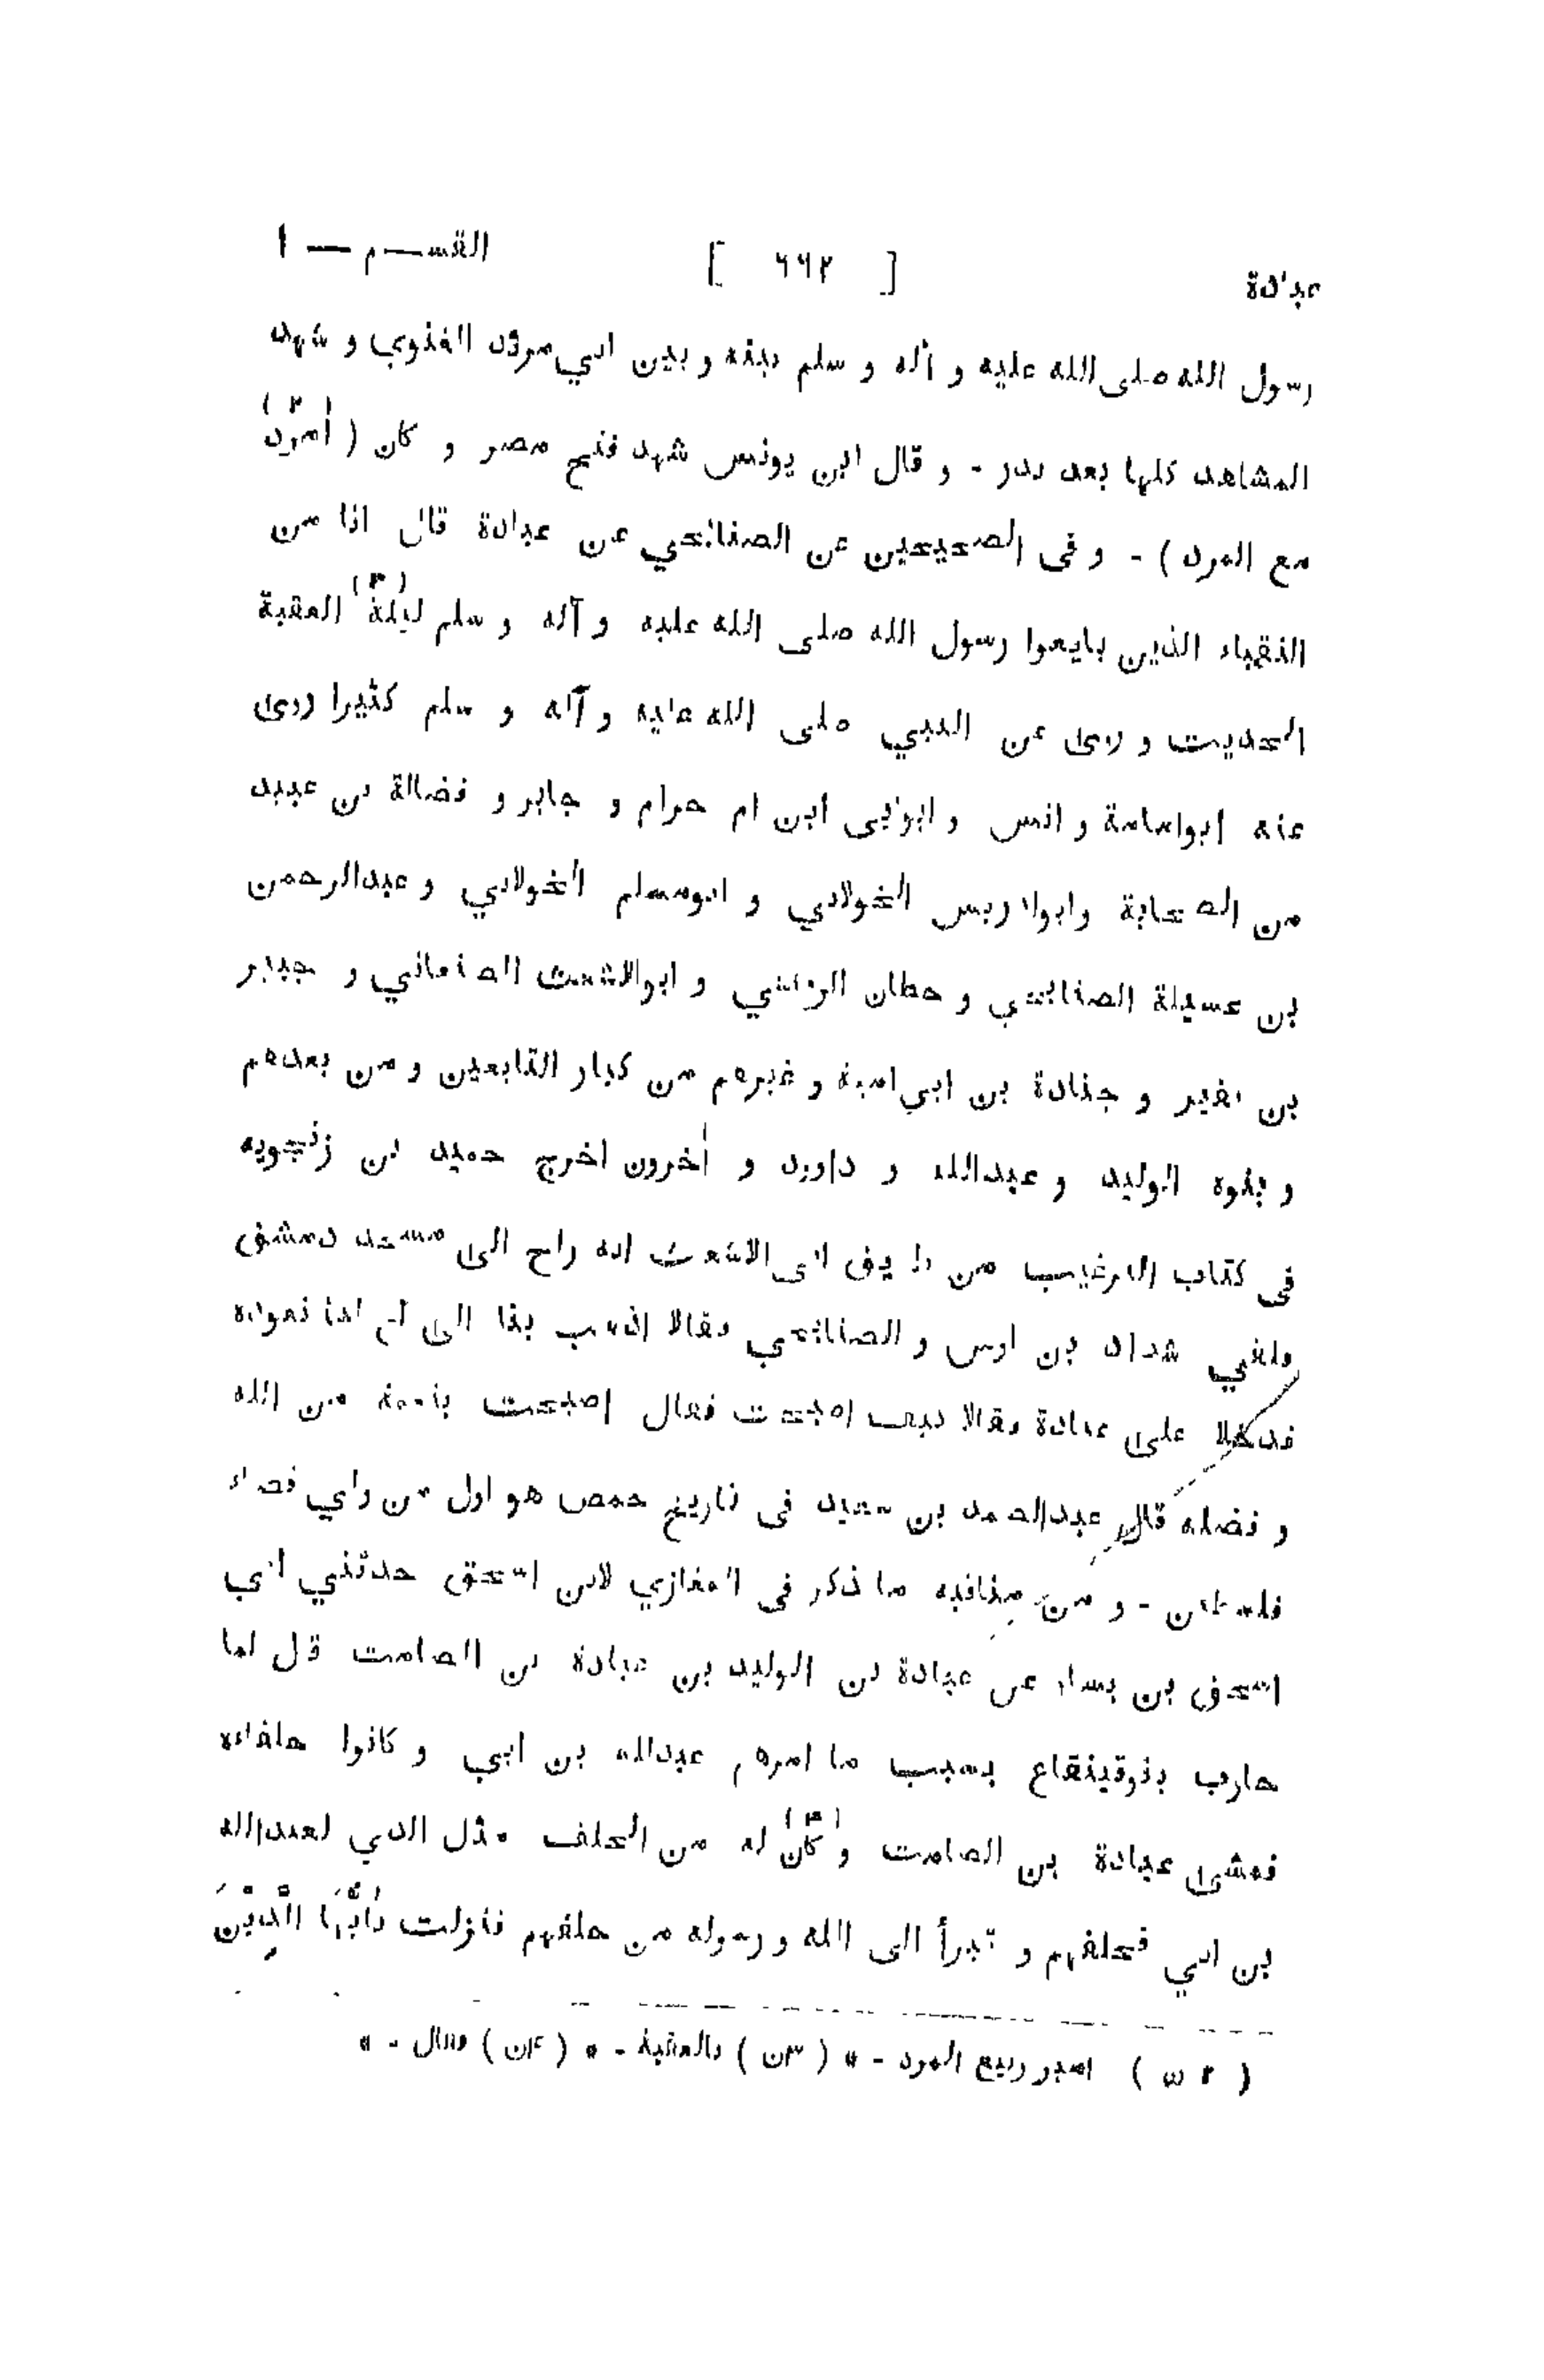 عبادة [ ٦٦٢ ] القســم — ١
رسول الله صلى الله عليه و آله و سلم بينه و بين ابي مرثد الغنوي و شهد
المشاهد كلها بعد بدر - و قال ابن يونس شهد فتح مصر و كان ( (٢)
مع المرد ) - و فى الصحيحين عن الصنابحي عن عبادة قال انا من
النقباء الذين بايعوا رسول الله صلى الله عليه و آله و سلم ليلة (٣) العقبة
الحديث و روى عن النبي صلى الله عليه و آله و سلم كثيرا روى
عنه ابوامامة و انس و ابوابى ابن ام حرام و جابر و فضالة بن عبيد
من الصحابة وابوادريس الخولاني و ابومسلم الخولاني و عبدالرحمن
بن عسيلة الصنابحي و حطان الرقاشي و ابوالاشعث الصنعاني و جبير
بن نفير و جنادة بن ابي امية و غيرهم من كبار التابعين و من بعدهم
و بنوه الوليد و عبدالله و داوود و آخرون اخرج حميد بن زنجويه
فى كتاب الترغيب من طريق ابى الاشعث انه راح الى مسجد دمشق
فلقي شداد بن اوس و الصنابحي فقالا اذهب بنا الى اخ لنا نعوده
فدخلا على عبادة فقالا كيف اصبحت فقال اصبحت بنعمة من الله
و فضله قال عبدالصمد بن سعيد فى تاريخ حمص هو اول من ولي قضاء
فلسطين - و من مناقبه ما ذكر فى المغازي لابن اسحق حدثني ابي
اسحق بن يسار عن عبادة بن الوليد بن عبادة بن الصامت قال لما
حارب بنوقينقاع بسبب ما امرهم عبدالله بن ابي و كانوا حلفاءه
فمشى عبادة بن الصامت و كان (٤) له من الحلف مثل الذي لعبدالله
بن ابي فخلفهم و تبرأ الى الله و رسوله من حلفهم فنزلت يٰاَيُّهَا الَّذِيْنَ
( ٢ ن ) امير ربيع المرد - * ( ٣ن ) بالعقبة - * ( ٤ن ) فقال - *